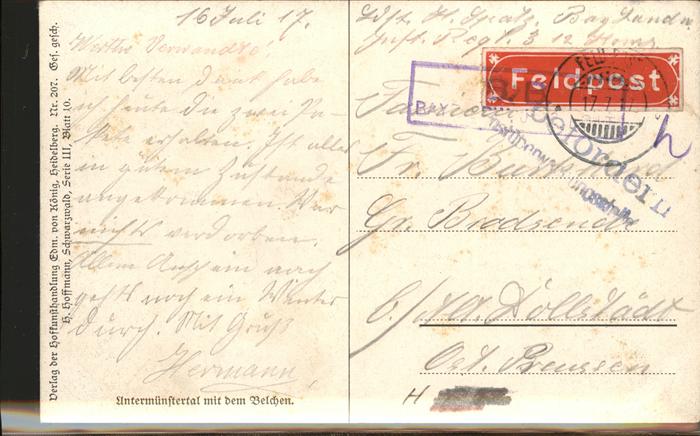 16 Juli 17.
Werthe Verwandte!
Mit besten Dank habe
ich heute die zwei Pa-
kete erhalten. Ist alles
in gutem Zustande
angekommen. War
nichts verdorben.
Allem Anschein nach
gehts noch ein Winter
durch. Mit Gruß
Hermann
Untermünstertal mit dem Belchen.
Verlag der Hofkunsthandlung Edm. von König, Heidelberg. Nr. 207. Ges. gesch.
H. Hoffmann, Schwarzwald, Serie III, Blatt 10.
Ldst. H. Bay. Landw.
Inft. Regt. 3 12 Komp.
Feldpost
17.7.
befördern
Familie
Fr.
Gr.
b/ Döllstädt
Ost. Preussen
H